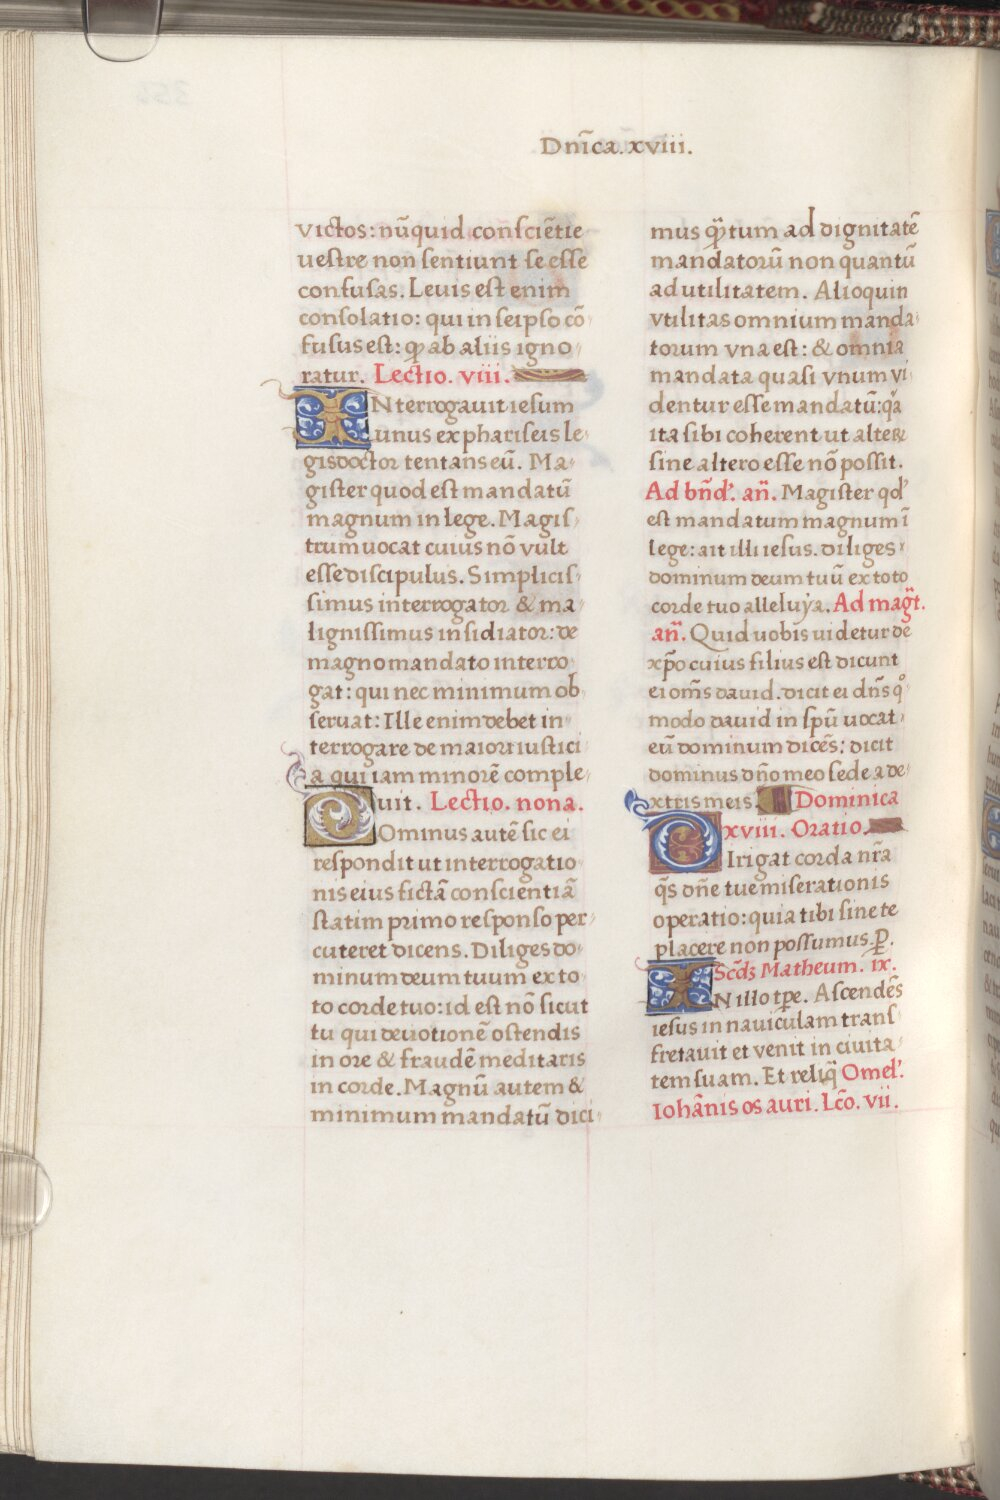 Dnīca. xviii.
victos: nūquid conſciētie
ueſtre non ſentiunt ſe eſſe
confuſas. Leuis eſt enim
conſolatio: qui in ſeipſo cō
fuſus eſt: ꝙ ab aliis igno
ratur. Lectio. viii.
INterrogauit ieſum
unus ex phariſeis le
giſdoctor tentans eū. Ma
giſter quod eſt mandatū
magnum in lege. Magiſ
trum uocat cuius nō vult
eſſe diſcipulus. Simpliciſ
ſimus interrogator & ma
ligniſſimus inſidiator: de
magno mandato interro
gat: qui nec minimum ob
ſeruat: Ille enim debet in
terrogare de maiori iuſtici
a qui iam minorē comple
uit. Lectio. nona.
DOminus autē ſic ei
reſpondit ut interrogatio
nis eius fictā conſcientiā
ſtatim primo reſponſo per
cuteret dicens. Diliges do
minum deum tuum ex to
to corde tuo: id eſt nō ſicut
tu qui deuotionē oſtendis
in ore & fraudē meditaris
in corde. Magnū autem &
minimum mandatū dici
mus ꝙ̄tum ad dignitatē
mandatorū non quantū
ad utilitatem. Alioquin
vtilitas omnium manda
torum vna eſt: & omnia
mandata quaſi vnum vi
dentur eſſe mandatū: qa
ita ſibi coherent ut alteꝝ
ſine altero eſſe nō poſſit.
Ad bn̄d'. an̄. Magiſter qd'
eſt mandatum magnum ī
lege: ait illi ieſus. diliges
dominum deum tuū ex toto
corde tuo alleluya. Ad magt̄.
an̄. Quid uobis uidetur de
xp̄o cuius filius eſt dicunt
ei om̄s dauid. dicit ei dn̄s qo
modo dauid in ſpū uocat
eū dominum dicēs: dicit
dominus dn̄o meo ſede a de
xtris meis. Dominica
xviii. Oratio.
DIrigat corda nr̄a
q̄s dn̄e tue miſerationis
operatio: quia tibi ſine te
placere non poſſumus. P.
Scd̄ꝫ Matheum. ix.
IN illo tp̄e. Aſcendēs
ieſus in nauiculam tranſ
fretauit et venit in ciuita
tem ſuam. Et reliq̄ Omel'.
Iohānis os auri. Lc̄o. vii.